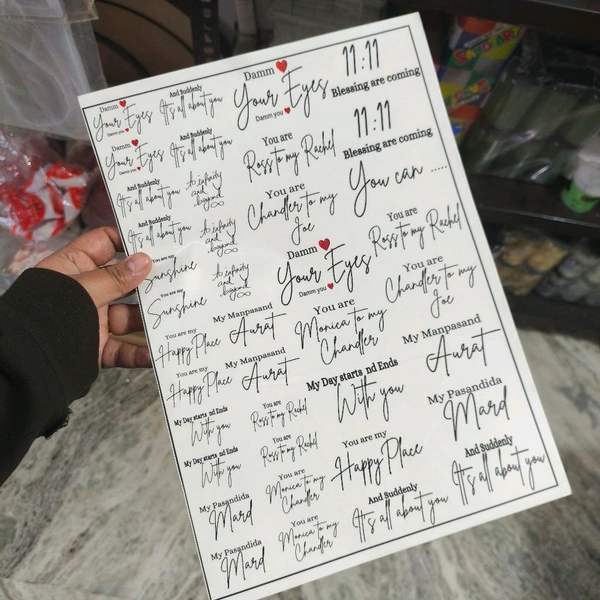 Damm
Your Eyes
Damm you
Damm
Your Eyes
Damm you
And Suddenly
It's all about you
And Suddenly
It's all about you
You are my
Sunshine
You are my
Sunshine
You are my
Happy Place
You are my
Happy Place
My Day starts nd Ends
With you
My Day starts nd Ends
With you
My Pasandida
Mard
My Pasandida
Mard
And Suddenly
It's all about you
And Suddenly
It's all about you
to infinity
and
beyond
to infinity
and
beyond
to infinity
and
beyond
My Manpasand
Aurat
My Manpasand
Aurat
You are
Ross to my Rachel
You are
Ross to my Rachel
You are
Monica to my
Chandler
You are
Monica to my
Chandler
Damm
Your Eyes
Damm you
You are
Ross to my Rachel
You are
Chandler to my
Joe
Damm
Your Eyes
Damm you
You are
Monica to my
Chandler
My Day starts nd Ends
With you
You are my
Happy Place
And Suddenly
It's all about you
11:11
Blessing are coming
11:11
Blessing are coming
You can .....
You are
Ross to my Rachel
You are
Chandler to my
Joe
My Manpasand
Aurat
My Pasandida
Mard
And Suddenly
It's all about you